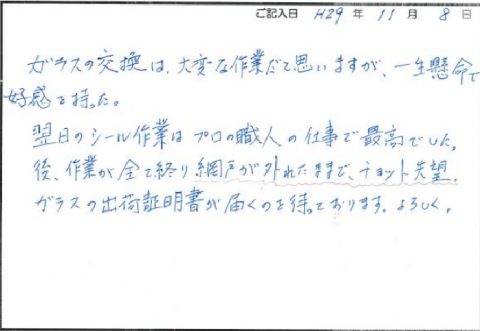 ご記入日 H29年 11月 8日
ガラスの交換は、大変な作業だと思いますが、一生懸命で
好感を持った。
翌日のシール作業はプロの職人の仕事で最高でした。
後、作業が全て終り網戸が外れたままで、チョット失望。
ガラスの出荷証明書が届くのを待っております。よろしく。